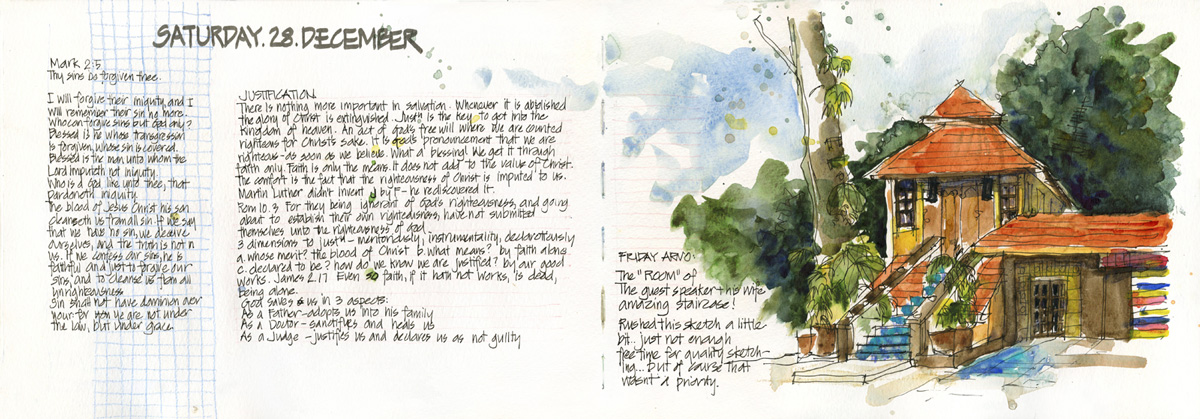 SATURDAY.28.DECEMBER
Mark 2:5
Thy sins be forgiven thee.
I will forgive their iniquity, and I
will remember their sin no more.
Who can forgive sins but God only?
Blessed is he whose transgression
is forgiven, whose sin is covered.
Blessed is the man unto whom the
Lord imputeth not iniquity.
Who is a God like unto thee, that
pardoneth iniquity
The blood of Jesus Christ his son
cleanseth us from all sin. If we say
that we have no sin, we deceive
ourselves, and the truth is not in
us. If we confess our sins, he is
faithful and just to forgive our
sins, and to cleanse us from all
unrighteousness
Sin shall not have dominion over
your: for you ye are not under
the law, but under grace.
JUSTIFICATION
There is nothing more important in salvation. Whenever it is abolished
the glory of Christ is extinguished. Justn is the key to get into the
kingdom of heaven. An act of God's free will where we are counted
righteous for Christ's sake. It is God's pronouncement that we are
righteous - as soon as we believe. What a blessing! We get it through
faith only. Faith is only the means. It does not add to the value of Christ.
The comfort is the fact that the righteousness of Christ is imputed to us.
Martin Luther didn't invent J by F - he rediscovered it.
Rom 10.3 For they being ignorant of God's righteousness, and going
about to establish their own righteousness, have not submitted
themselves unto the righteousness of God.
3 dimensions to justn - meritoriously, instrumentality, declaratively
a. whose merit? the blood of Christ b. what means? by faith alone
c. declared to be? how do we know we are justified? by our good
works. James 2.17 Even so faith, if it hath not works, is dead,
being alone.
God saves us in 3 aspects:
As a Father - adopts us into his family
As a Doctor - sanctifies and heals us
As a Judge - justifies us and declares us as not guilty
FRIDAY ARVO:
The "ROOM" of
The guest speaker + his wife
amazing staircase!
Rushed this sketch a little
bit.. just not enough
free time for quality sketch-
ing... but of course that
wasn't a priority.